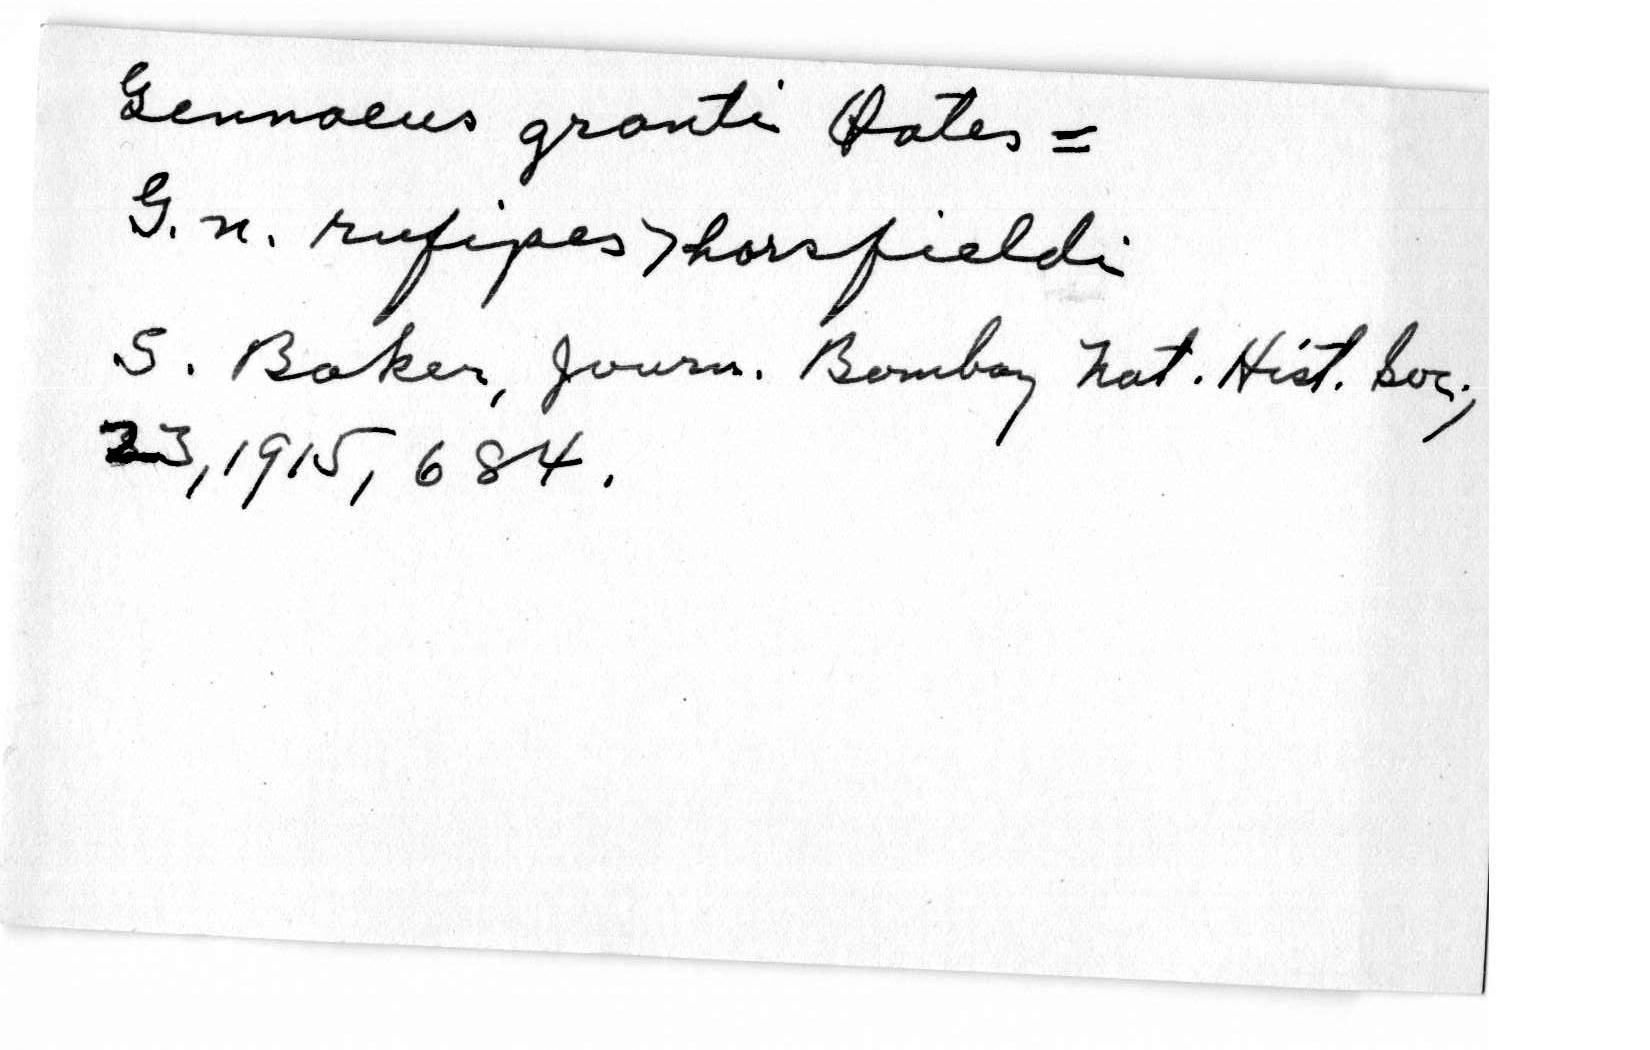 Gennaeus granti Oates =
G. n. rufipes > horsfieldi
S. Baker, Journ. Bombay Nat. Hist. Soc.,
23, 1915, 684.